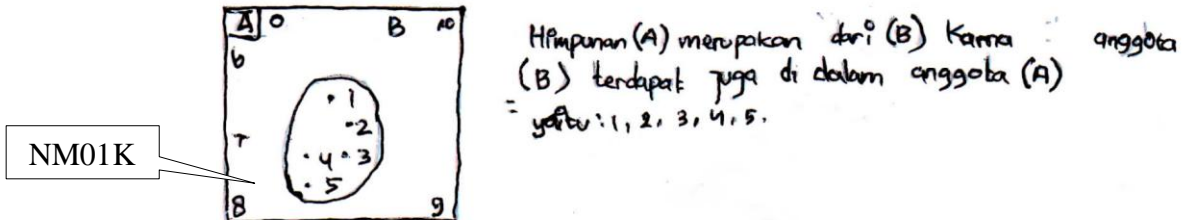 A 0 B 10
6
1
2
7
4 3
5
8 9
NM01K
Himpunan (A) merupakan dari (B) Karna anggota
(B) terdapat juga di dalam anggota (A)
= yaitu : 1, 2, 3, 4, 5.